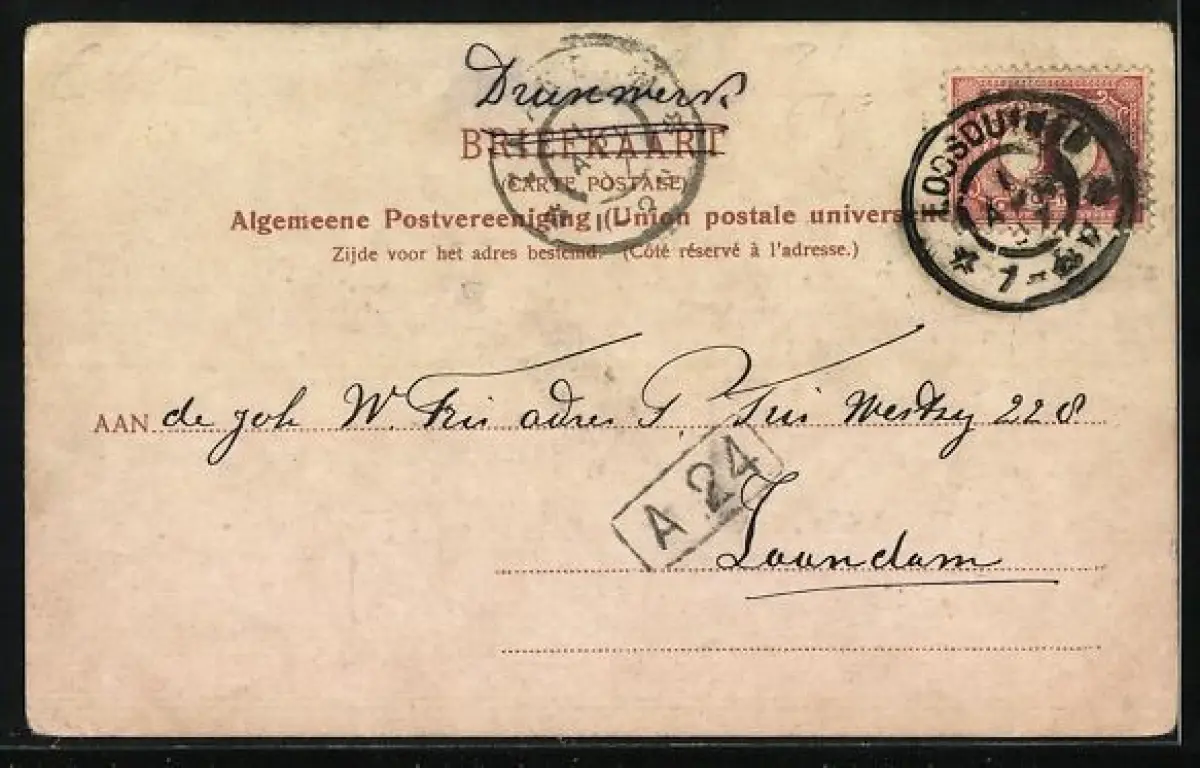 Drukwerk
BRIEFKAART
(CARTE POSTALE)
Algemeene Postvereeniging (Union postale universelle
Zijde voor het adres bestemd. (Côté réservé à l'adresse.)
LOOSDUINEN
AAN de joh W. Fris adres P. Fris 228
A 24
Zaandam